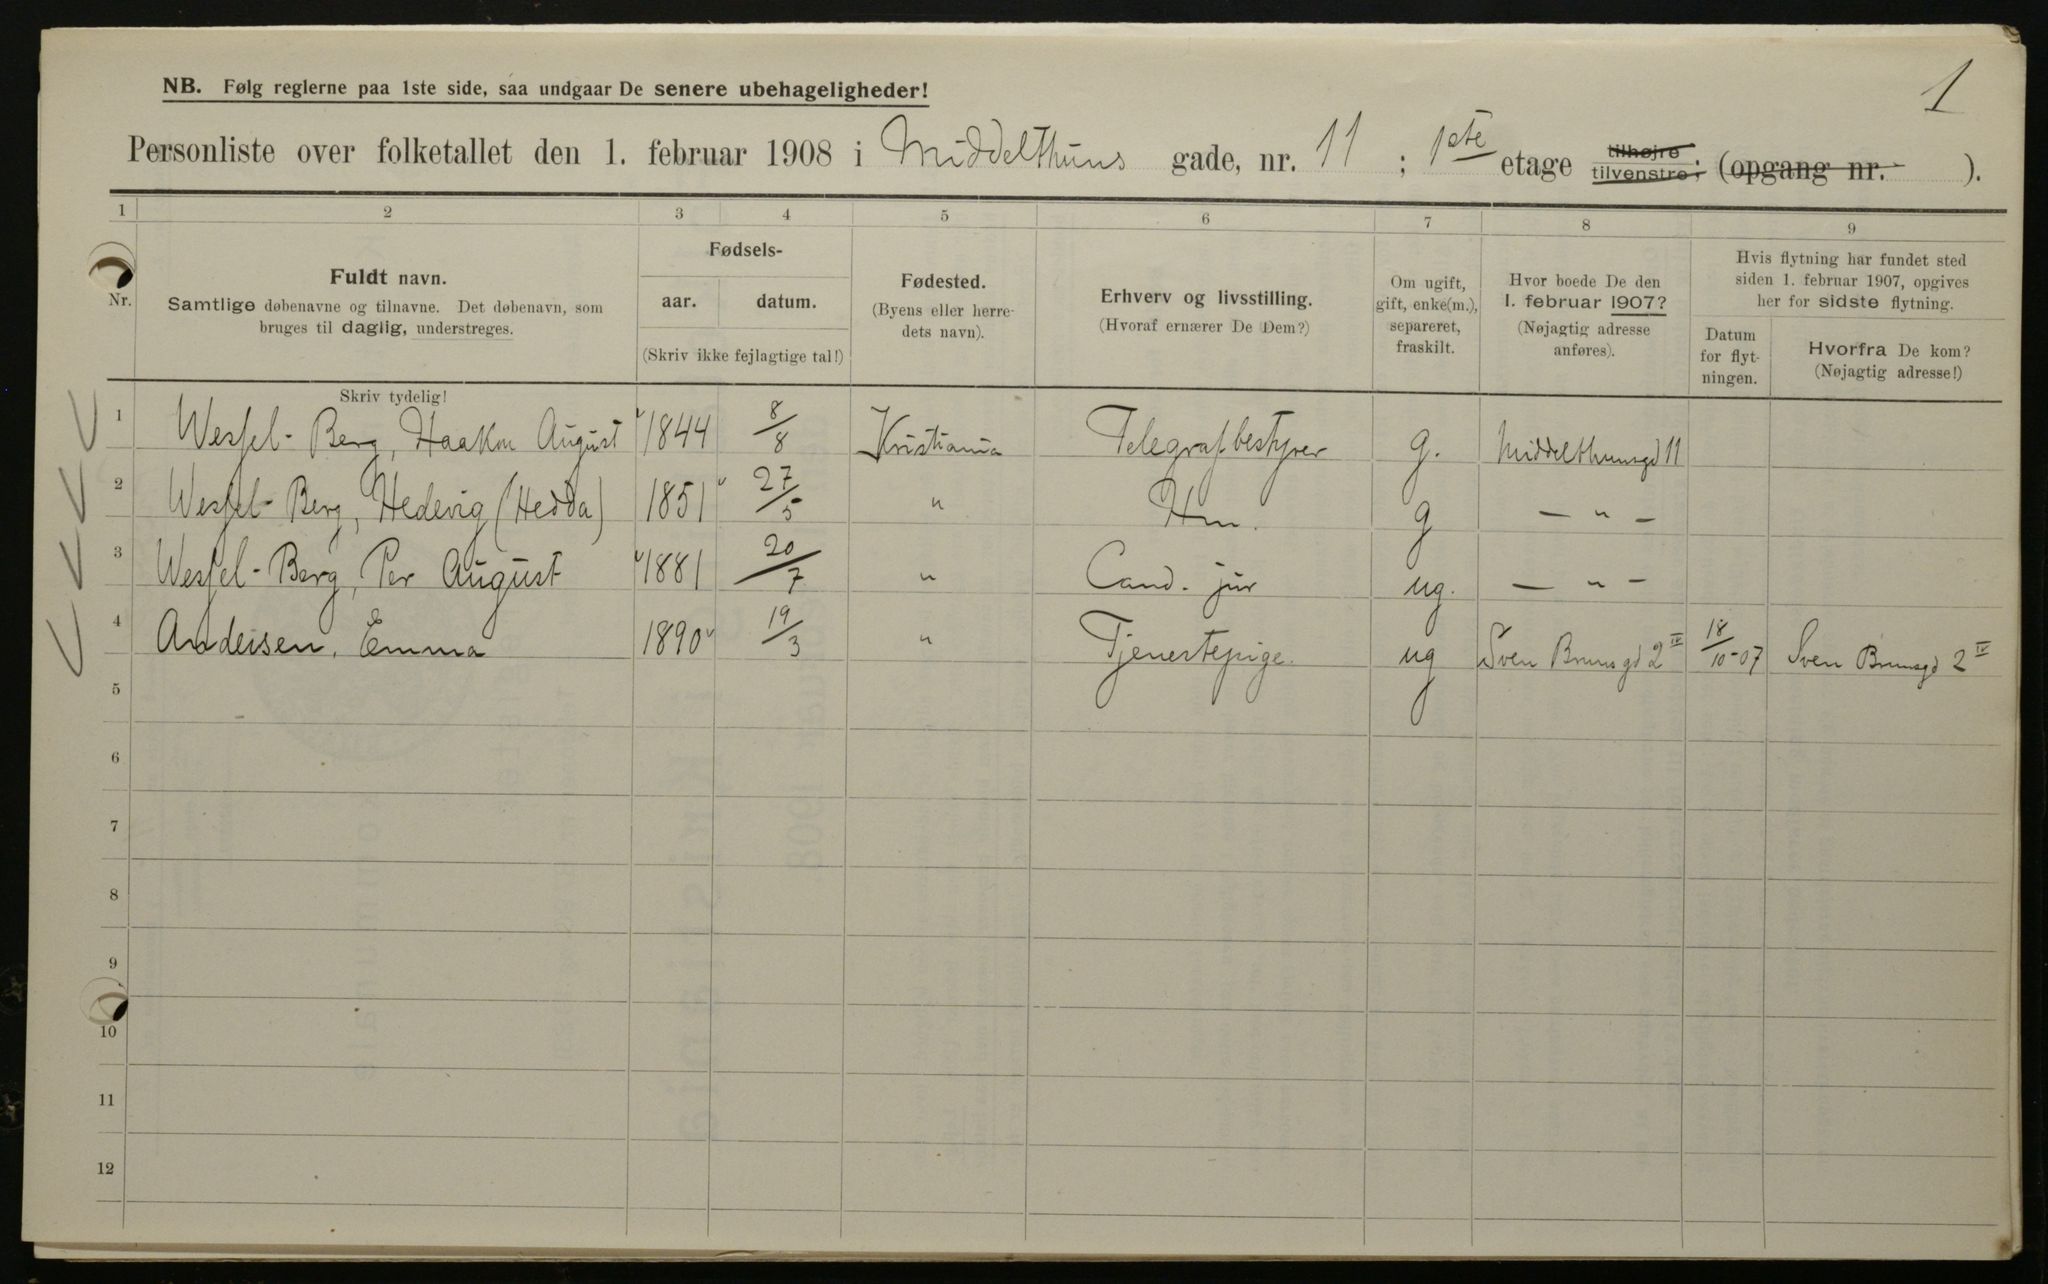 1
NB. Følg reglerne paa 1ste side, saa undgaar De senere ubehageligheder!
Personliste over folketallet den 1. februar 1908 i Middelthuns gade, nr. 11 ; 1ste etage tilhøjre tilvenstre; (opgang nr. ).
1 2 3 4 5 6 7 8 9
Nr.
Fuldt navn.
Samtlige døbenavne og tilnavne. Det døbenavn, som
bruges til daglig, understreges.
Fødsels-
aar. datum.
(Skriv ikke fejlagtige tal!)
Fødested.
(Byens eller herre-
dets navn).
Erhverv og livsstilling.
(Hvoraf ernærer De Dem?)
Om ugift,
gift, enke(m.),
separeret,
fraskilt.
Hvor boede De den
1. februar 1907?
(Nøjagtig adresse
anføres).
Hvis flytning har fundet sted
siden 1. februar 1907, opgives
her for sidste flytning.
Datum
for flyt-
ningen.
Hvorfra De kom?
(Nøjagtig adresse!)
Skriv tydelig!
1 Wessel-Berg, Haakon August 1844 8/8 Kristiania Telegrafbestyrer g. Middelthunsgd 11
2 Wessel-Berg, Hedevig (Hedda) 1851 27/5 " Hm. g — " —
3 Wessel-Berg, Per August 1881 20/7 " Cand. jur ug. — " —
4 Andersen, Emma 1890 19/3 " Tjenestepige. ug Sven Brunsgd 2 IV 18/10-07 Sven Brunsgd 2 IV
5
6
7
8
9
10
11
12